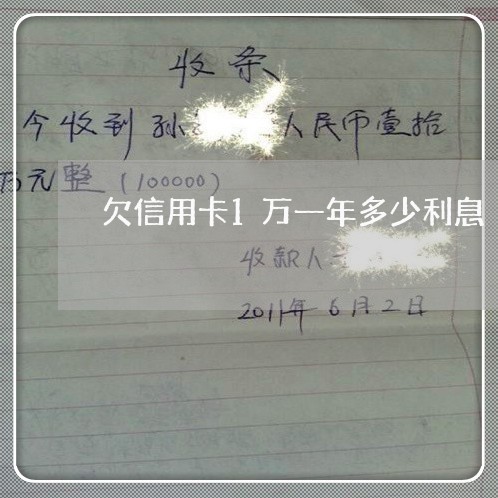 收条
今收到孙 人民币壹拾
万元整（100000）
欠信用卡1万一年多少利息
收款人
2011年6月2日